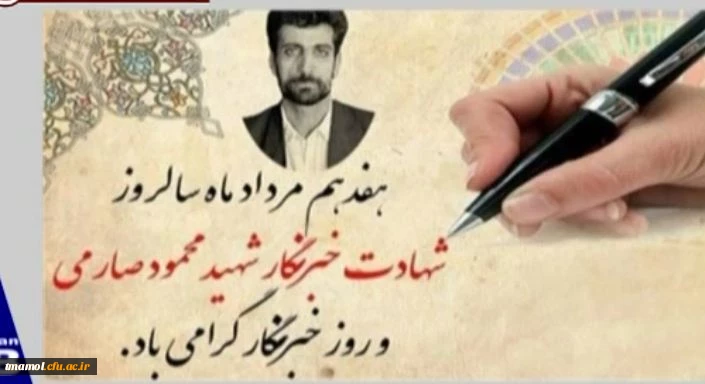 هفدهم مرداد ماه سالروز
شهادت خبرنگار شهید محمود صارمی
و روز خبرنگار گرامی باد.
tmamol.cfu.ac.ir